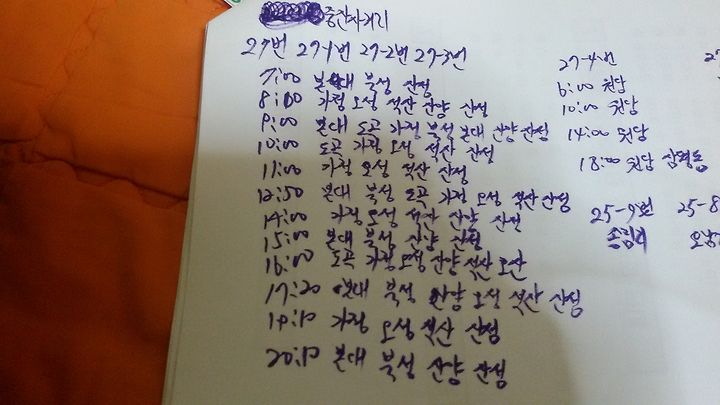 중간사거리
27번 27-1번 27-2번 27-3번
7:00 본대 북성 산성
8:00 가정 오성 석산 산양 산성
9:00 본대 도곡 가정 북성 본대 산양 산성
10:00 도곡 가정 오성 석산 산성
11:00 가정 오성 석산 산성
12:50 본대 북성 도곡 가정 오성 석산 산성
14:00 가정 오성 석산 산양 산성
15:00 본대 북성 산양 산성
16:00 도곡 가정 오성 산양 석산
17:20 본대 북성 산양 오성 석산 산성
19:10 가정 오성 석산 산성
20:10 본대 북성 산양 산성
27-4번
6:00 뒷담
10:00 뒷담
14:00 뒷담
18:00 뒷담
25-9번
송림리
25-8